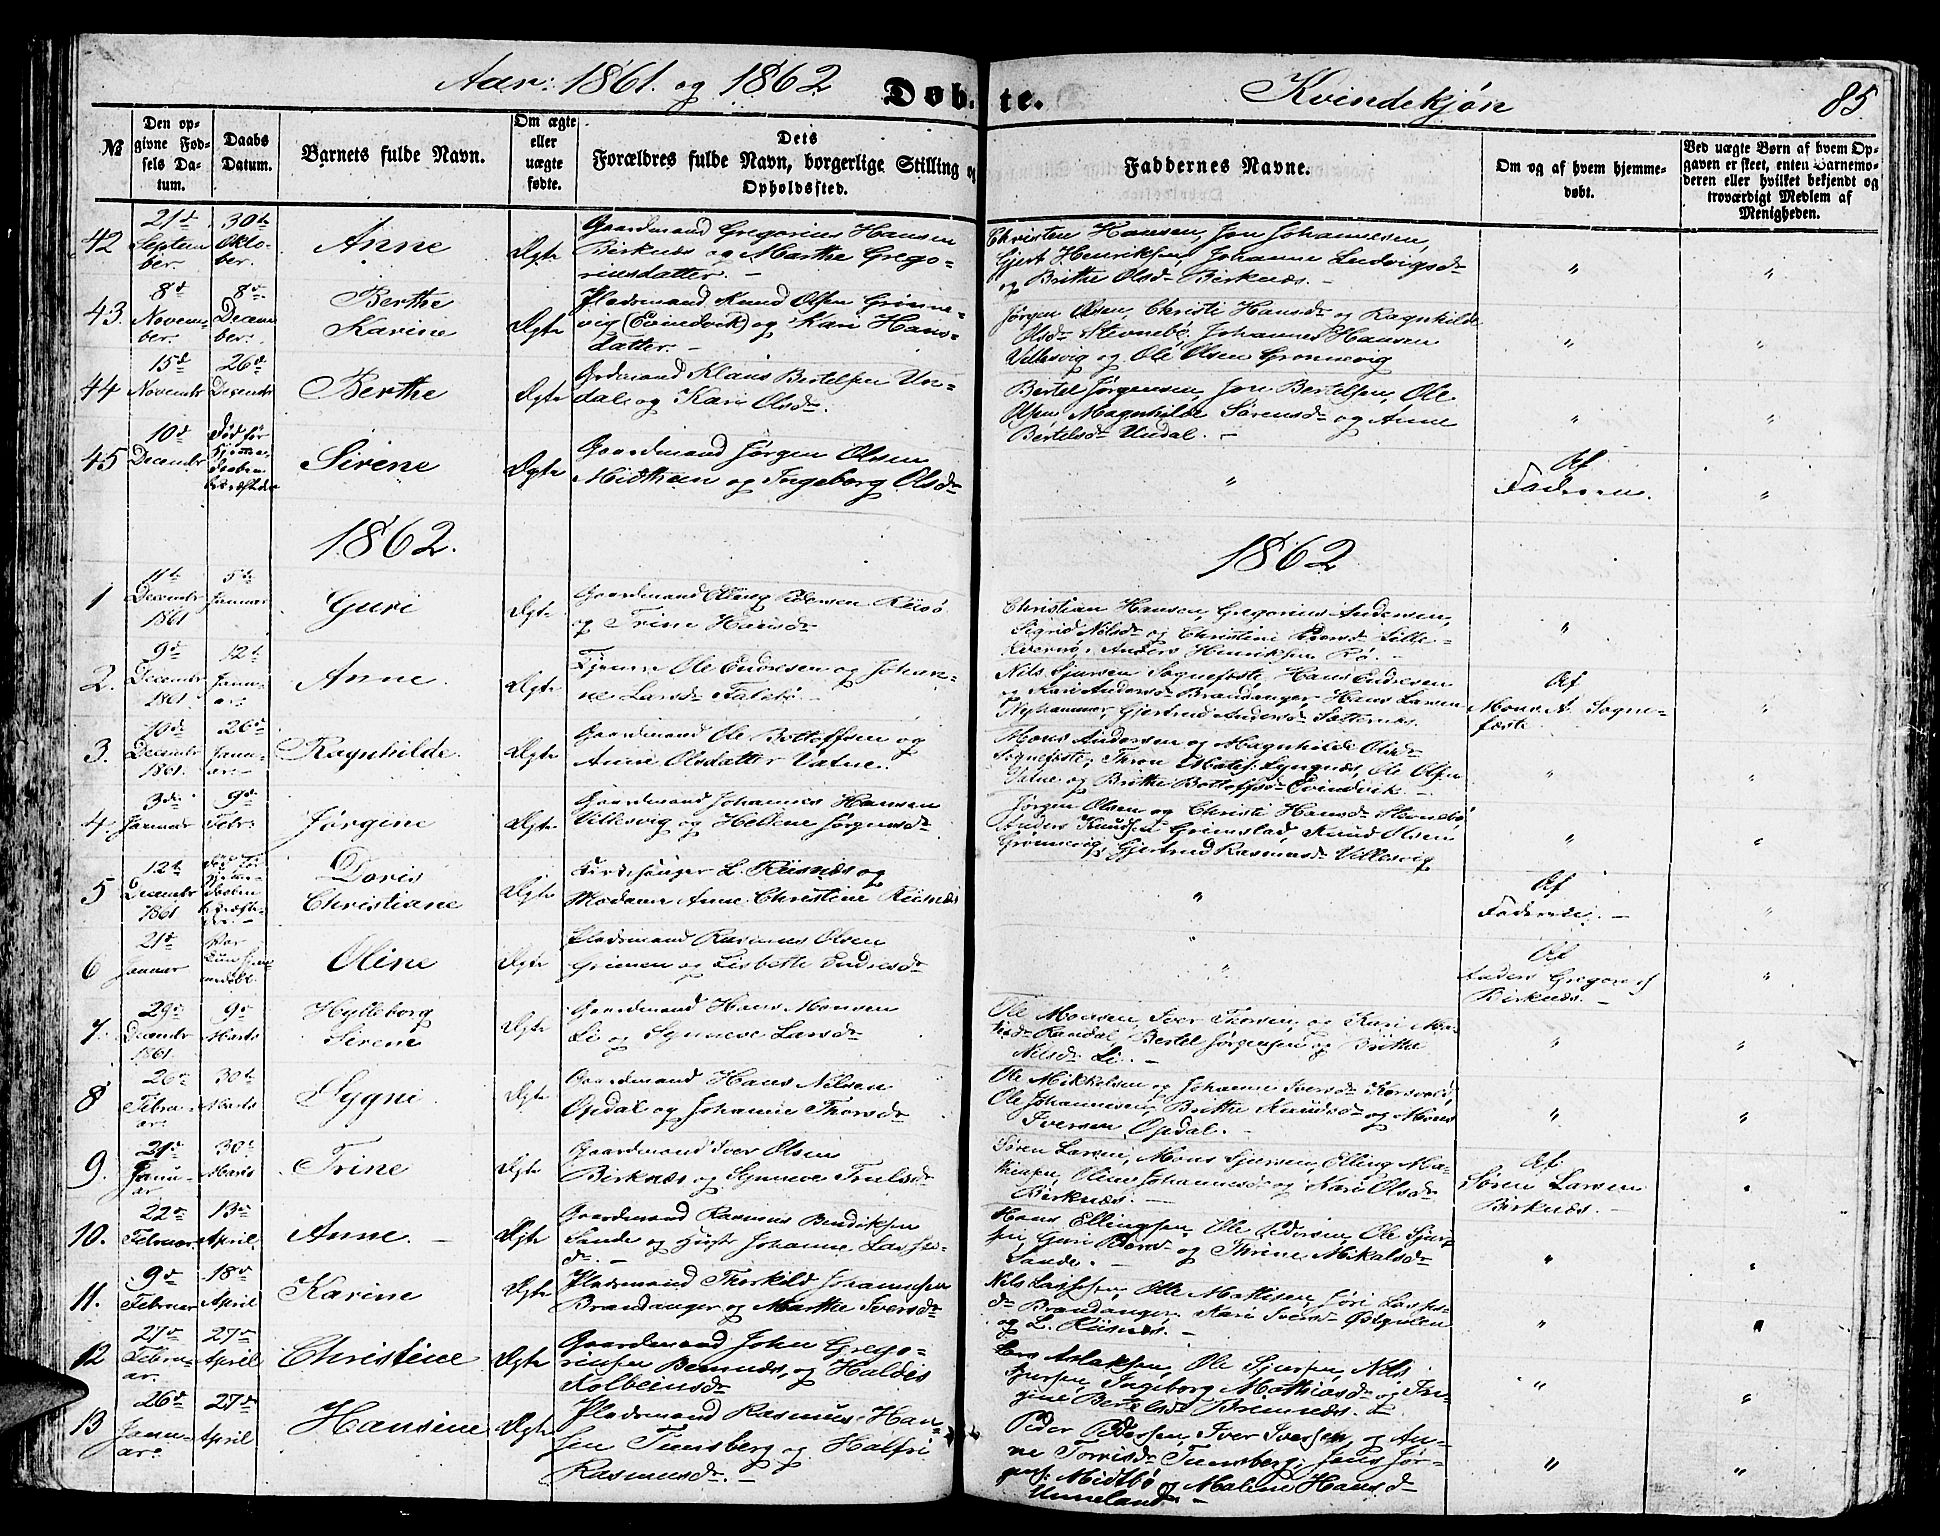 Aar: 1861. og 1862
Döb-
te.
Kvindekjøn
85.
№
Den op-
givne Fød-
sels Da-
tum.
Daabs
Datum.
Barnets fulde Navn.
Om ægte
eller
uægte
fødte.
Dets
Forældres fulde Navn, borgerlige Stilling og
Opholdssted.
Faddernes Navne.
Om og af hvem hjemme-
døbt.
Ved uægte Børn af hvem Op-
gaven er skeet, enten Barnemo-
deren eller hvilket bekjendt og
troværdigt Medlem af
Menigheden.
42
21de
Septem
ber.
30te
Okto-
ber.
Anne
Ægte
Gaardmand Gregorius Hansen
Birknes og Marthe Grego-
riusdatter. –
Christen Hansen, Jon Johannesen,
Gjert Henriksen, Johanne Ludvigsdr
og Brithe Olsdr Birknæs. –
"
"
43.
8de
Novem-
ber.
8de
Decem
ber.
Berthe
Karine
Ægte
Pladsmand Knud Olsen Grønne-
vig (Evindvik) og Kari Hans-
datter. –
Jørgen Olsen, Christi Hansdr og Ragnhilde
Olsdr Stevnebø, Johannes Hansen
Villesvig og Ole Olsen Grønnevig
"
"
44
15de
Novembr
26de
Decembr
Berthe
Ægte
Grdmand Klaus Bertelsen Un-
dal og Kari Olsdr.
Bertel Jørgensen, Jon Bertelsen, Ole
Olsen, Magnhilde Sørensdr og Anne
Bertelsdr Undal. –
"
"
45
10de
Decembr
Død før
Hjemme-
daaben
bekræftedes
Sirene
Ægte
Gaardmand Jørgen Olsen
Midttun og Ingeborg Olsdr
"
Af
Faderen.
"
1862.
1862
1
11te
Decembr
1861
5te
Januar
Guri
Ægte
Gaardmand Elling Pedersen Riisø
og Trine Hansdr
Christian Hansen, Gregorius Andersen,
Sigrid Nilsdr og Christine Pedersdr Lille-
Anders Henriksen Rø. –
"
2.
9de
Decembr
1861
12te
Janu-
ar.
Anne.
Ægte
Ole Endresen og Johan-
ne Larsdr
Nils Sjursen Sognefeste, Hans Endresen
og Kari Andersdr Brandanger, Hans Larsen
Nyhammer, Gjertrud Andersdr
Af
Mons A. Sogne-
fæste
"
3.
10de
Decembr
1861.
26de
Janu-
ar.
Ragnhilde.
Ægte
Gaardmand Ole Botolfsen og
Anne Olsdatter Vatne.
Mons Andersen og Magnhilde Olsdr
Sognefeste, Thron Lyngnæs, Ole Olsen
Vatne og Brithe Botolfsdr Evindvik.
"
"
4.
3de
Januar
9de
Febr.
Jørgine
Ægte
Gaardmand Johannes Hansen
Villesvig og Hellene Jørgensdr
Jørgen Olsen og Christi Hansdr Stevnebø,
Anders Knudsen Grimstad, Knud Olsen
Grønnevig, Gjertrud Rasmusdr Villesvig
"
"
5
12te
Decembr
1861
Doris
Christiane
Ægte
Kirkesanger L. Riisnæs og
Madame Anne Christine Riisnæs
"
Af
Faderen. –
"
6
21de
Januar
Oline
Ægte
Pladsmand Rasmus Olsen
Grinen og Lisbeth Endresdr
"
Af
Anders Gregorsen
Birknæs. –
"
7.
29de
Decembr
1861.
9de
Marts
Hylleborg
Sirene
Ægte
Gaardmand Hans Monsen
Li og Synneve Larsdr
Ole Monsen, Iver Thorsen, og Kari
Randal, Bertel Jørgensen og Brithe
Nilsdr Li. –
"
"
8
26de
Febru-
ar.
30te
Marts
Sygni.
Ægte
Gaardmand Hans Nilsen
Opdal og Johanne Thorsdr
Ole Mikkelsen og Johanne Iversdr
Ole Johannesen, Brithe Knudsdr og Mons
Iversen Opdal. –
"
"
9.
21de
Janu-
ar
30te
Marts
Trine
Ægte
Gaardmand Iver Olsen
Birknæs og Synneve Trulsdr
Søren Larsen, Mons Sjursen, Elling Ma-
thiasen, Oline Johannesdr og Kari Olsdr
Birknæs. –
Af
Søren Larsen
Birknæs. –
"
10.
22de
Februar.
13de
April.
Anne. –
Ægte
Gaardmand Rasmus Bendiksen
Sande og Hustr Johanne Lasses-
dr. –
Hans Ellingsen, Ole Pedersen, Ole Sjur-
sen, Guri Pedersdr og Thrine Mikalsdr
Sande. –
"
"
11.
9de
Februar
18de
April
Karine
Ægte
Pladsmand Thorkild Johannesen
Brandanger og Marthe Iversdr
Nils Lassesen, Ole Mattisen, Jøri Lasses-
dr Brandanger, Kari Iversdr
og L. Riisnæs. –
"
"
12
27de
Febru-
ar.
27de
April
Christine
Ægte
Gaardmand John Grego-
riusen Bremnæs, og Haldis
Kolbeinsdr
Lars Aslaksen, Ole Sjursen, Nils
Sjursen, Ingeborg Mathiasdr og
Bertelsdr Bremnæs.
"
"
13
26de
Janu-
ar.
27de
April
Hansine
Ægte
Pladsmand Rasmus Han-
sen Tunsberg og Halfri
Rasmusdr. –
Peder Pedersen, Iver Iversen, og An-
ne Torrisdr Tunsberg, Jens Jør-
gens. Midtbø og Malene Hansdr
Unneland. –
"
"